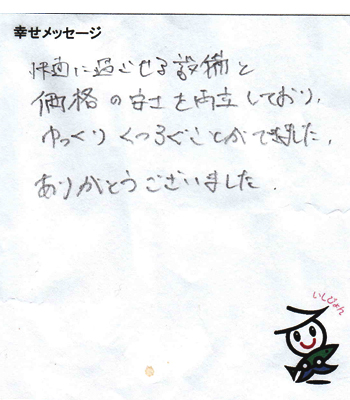 幸せメッセージ
快適に過ごせる設備と
価格の安さを両立しており、
ゆっくりくつろぐことができました。
ありがとうございました。
いしぴょん